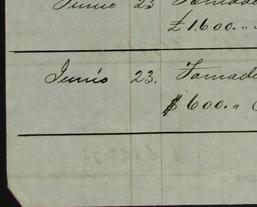 Junio 23 Tomado
£1.600.."
Junio 23. Tomado
$600.."